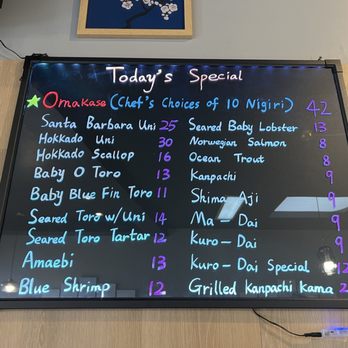 Today's Special
Omakase (Chef's Choices of 10 Nigiri) 42
Santa Barbara Uni 25
Hokkado Uni 30
Hokkado Scallop 16
Baby O Toro 13
Baby Blue Fin Toro 11
Seared Toro w/Uni 14
Seared Toro Tartar 12
Amaebi 13
Blue Shrimp 12
Seared Baby Lobster 13
Norwegian Salmon 8
Ocean Trout 8
Kanpachi 9
Shima Aji 9
Ma-Dai 9
Kuro-Dai 9
Kuro-Dai Special 12
Grilled Kanpachi Kama